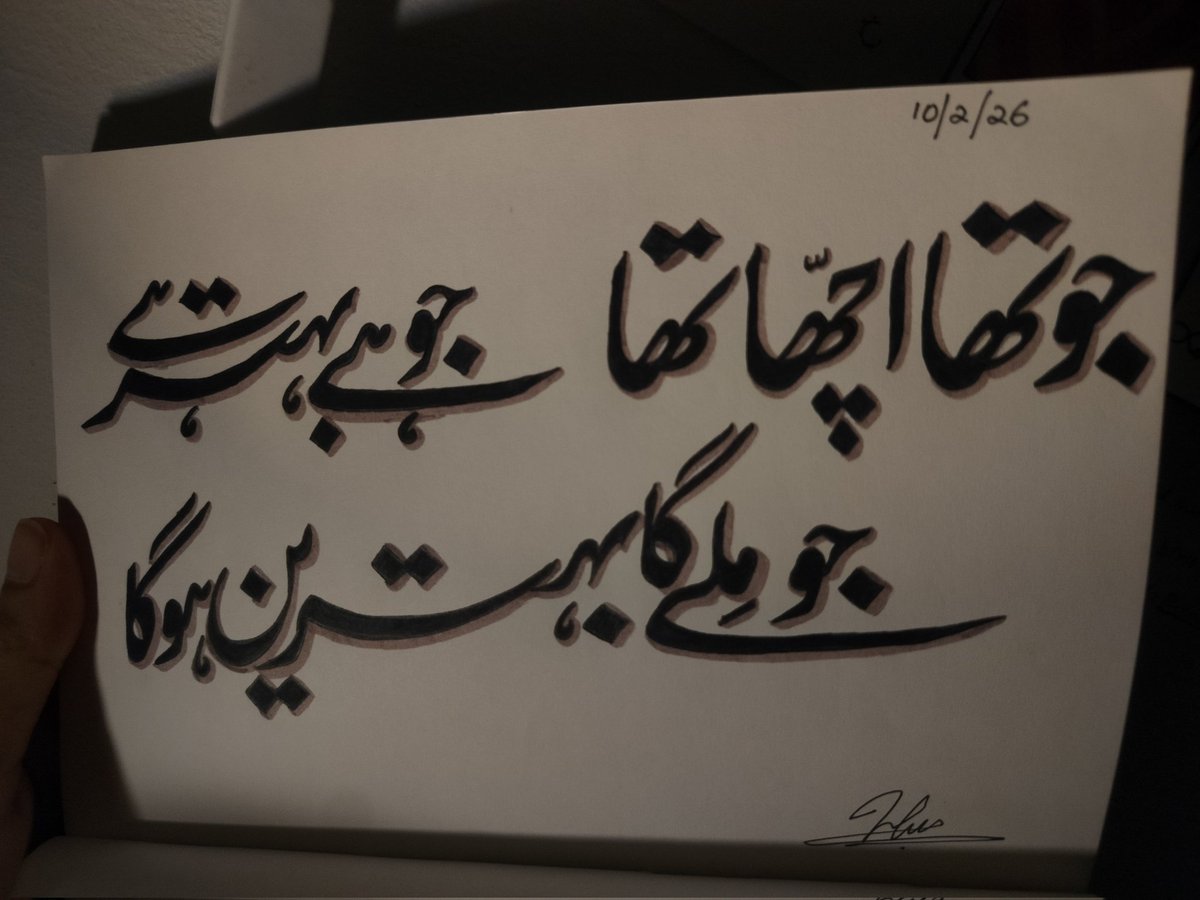 10/2/26
جو تھا اچھّا تھا جو ہے بہتر ہے
جو مِلے گا بہترین ہوگا